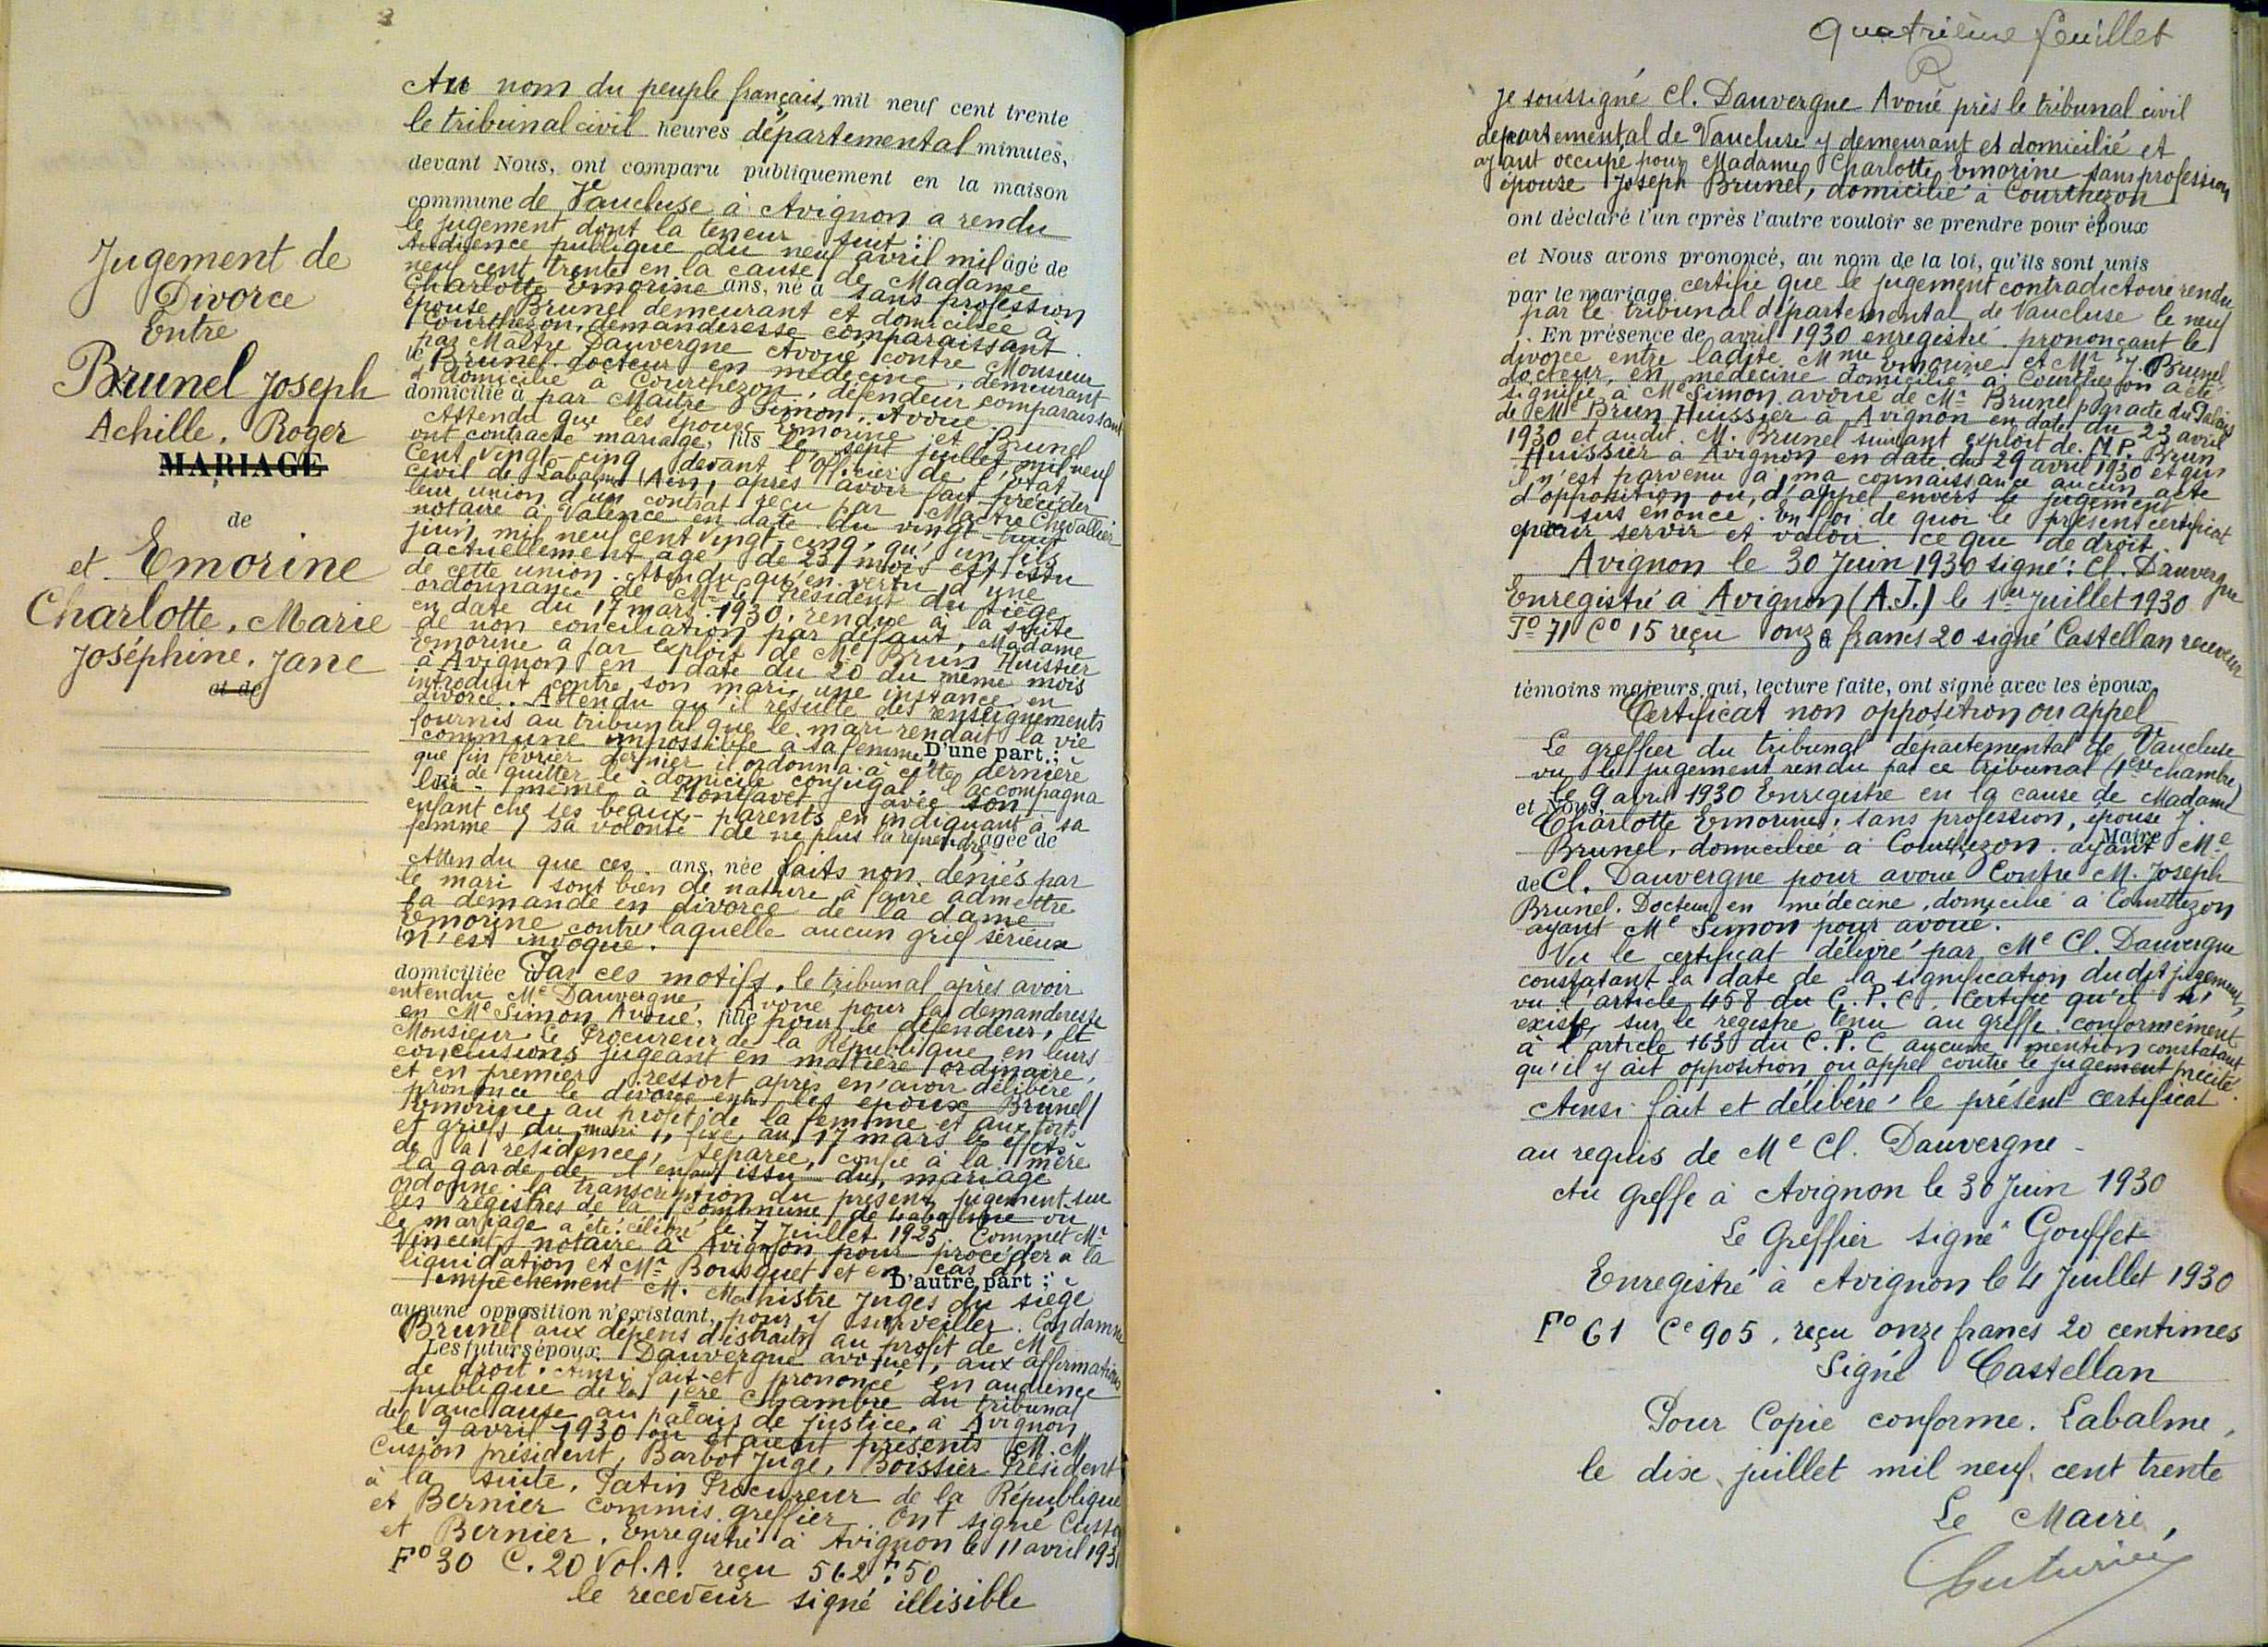 Jugement de
Divorce
Entre
Brunel Joseph
Achille, Roger
MARIAGE
de
et Emorine
Charlotte, Marie
Joséphine, Jane
et de
Au nom du peuple français, mil neuf cent trente
le tribunal civil heures départemental minutes,
devant Nous, ont comparu publiquement en la maison
commune de Vaucluse à Avignon a rendu
le jugement dont la teneur suit :
Audience publique du neuf avril mil âgé de
neuf cent trente en la cause de Madame
Charlotte Emorine ans, né à sans profession
épouse Brunel demeurant et domiciliée à
Courthezon, demanderesse comparaissant
par Maître Dauvergne Avoué contre Monsieur
le Brunel docteur en médecine, demeurant
et domicilié à Courthezon, défendeur comparaissant
domicilié à par Maître Simon, Avoué.
Attendu que les époux Emorine et Brunel
ont contracté mariage, fils le sept juillet mil neuf
cent vingt-cinq devant l'Officier de l'état
civil de Labalme (Ain) après avoir fait précéder
leur union d'un contrat reçu par Maître Chevallier
notaire à Valence en date du vingt-huit
juin mil neuf cent vingt-cinq, qu'un fils
actuellement âgé de 23 mois est issu
de cette union. Attendu qu'en vertu d'une
ordonnance de Mr le Président du siège
en date du 17 mars 1930, rendue à la suite
de non conciliation par défaut, Madame
Emorine a par exploit de Me Brun Huissier
à Avignon en date du 20 du même mois
introduit contre son mari une instance en
divorce. Attendu qu'il résulte des renseignements
fournis au tribunal que le mari rendait la vie
commune impossible à sa femme D'une part ;
que fin février dernier il ordonna à cette dernière
de quitter le domicile conjugal, l'accompagna
lui-même à Montfavet avec son
enfant che ses beaux-parents en indiquant à sa
femme sa volonté de ne plus la reprendre âgée de
Attendu que ces ans, née faits non déniés par
le mari sont bien de nature à faire admettre
la demande en divorce de la dame
Emorine contre laquelle aucun grief sérieux
n'est invoqué.
domiciliée à Par ces motifs, le tribunal après avoir
entendu Me Dauvergne, Avoué pour la demanderesse
en Me Simon Avoué, fille pour le défendeur, et
Monsieur Le Procureur de la République en leurs
conclusions jugeant en matière ordinaire,
et en premier ressort après en avoir délibéré
prononce le divorce entre les époux Brunel/
Emorine au profit de la femme et aux torts
et griefs du mari, fixe au 17 mars les effets
de la résidence, séparée, confie à la mère
la garde de l'enfant issu du mariage
ordonne la transcription du présent jugement sur
les registres de la commune de Labalme où
le mariage a été célébré le 7 juillet 1925. Commet Me
Vincent notaire à Avignon pour procéder à la
liquidation et Mr Bousquet et en cas d' D'autre part ;
empêchement M. Manistre Juges du siège
aucune opposition n'existant, pour y surveiller. Condamne
Brunel aux dépens distraits au profit de Me
Les futurs époux Dauvergne avoué, aux affirmations
de droit. Ainsi fait et prononcé en audience
publique de la 1ère Chambre du tribunal
de Vaucluse au palais de justice, à Avignon
le 9 avril 1930 où étaient présents M.M.
Cusson président, Barbot Juge, Boissier Président
à la suite, Patin Procureur de la République
et Bernier commis greffier. Ont signé Cusson
et Bernier. Enregistré à Avignon le 11 avril 193
F° 30 C. 20 Vol. A. reçu 562 f. 50
le receveur signé illisible
Quatrième feuillet
Je soussigné Cl. Dauvergne Avoué près le tribunal civil
départemental de Vaucluse y demeurant et domicilié et
ayant occupé pour Madame Charlotte Emorine sans profession
épouse Joseph Brunel, domicilié à Courthezon
ont déclaré l'un après l'autre vouloir se prendre pour époux
et Nous avons prononcé, au nom de la loi, qu'ils sont unis
par le mariage certifie que le jugement contradictoire rendu
par le tribunal départemental de Vaucluse le neuf
En présence de avril 1930 enregistré prononçant le
divorce entre ladite Mme Emorine et Mr J. Brunel
docteur, en médecine domicilié à Courthezon a été
signifié à Me Simon avoué de Mr Brunel par acte du Palais
de Me Brun Huissier à Avignon en date du 23 avril
1930 et audit M. Brunel suivant exploit de M.P. Brun
Huissier à Avignon en date du 29 avril 1930 et qu'
il n'est parvenu à ma connaissance aucun acte
d'opposition ou d'appel envers le jugement
sus énoncé. En foi de quoi le présent certificat
pour servir et valoir ce que de droit.
Avignon le 30 Juin 1930 signé : Cl. Dauvergne
Enregistré à Avignon (A.J.) le 1er Juillet 1930
F° 71 C° 15 reçu onze francs 20 signé Castellan receveur
témoins majeurs qui, lecture faite, ont signé avec les époux
Certificat non opposition ou appel
Le greffier du tribunal départemental de Vaucluse
vu le jugement rendu par ce tribunal (1ère chambre)
le 9 avril 1930 Enregistré en la cause de Madame
et Nous,
Charlotte Emorine, sans profession, épouse J.
Brunel, domiciliée à Courthezon. ayant Maire Me
de Cl. Dauvergne pour avoué Contre M. Joseph
Brunel. Docteur en médecine, domicilié à Courthezon
ayant Me Simon pour avoué.
Vu le certificat délivré par Me Cl. Dauvergne
constatant la date de la signification dudit jugement,
vu l'article 458 du C.P.C Certifie qu'il n'
existe sur le registre tenu au greffe conformément
à l'article 163 du C.P.C aucune mention constatant
qu'il y ait opposition ou appel contre le jugement précité.
Ainsi fait et délibéré le présent certificat
au requis de Me Cl. Dauvergne -
Au Greffe à Avignon le 30 Juin 1930
Le Greffier signé Gouffet
Enregistré à Avignon le 4 Juillet 1930
F° 61 Ce 905. reçu onze francs 20 centimes
Signé Castellan
Pour Copie conforme. Labalme,
le dix juillet mil neuf cent trente
Le Maire,